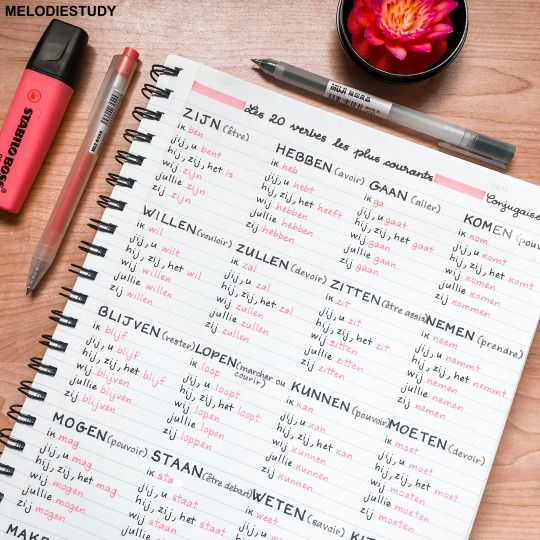 MELODIESTUDY
STABILO BOSS
MUJI 無印良品
Les 20 verbes les plus courants
Conjugaiso
ZIJN (être)
ik ben
jij, u bent
hij, zij, het is
wij zijn
jullie zijn
zij zijn
HEBBEN (avoir)
ik heb
jij, u hebt
hij, zij, het heeft
wij hebben
jullie hebben
zij hebben
GAAN (aller)
ik ga
jij, u gaat
hij, zij, het gaat
wij gaan
jullie gaan
zij gaan
KOMEN (pouv
ik kom
jij, u komt
hij, zij, het komt
wij komen
jullie komen
zij kommen
WILLEN (vouloir)
ik wil
jij, u wilt
hij, zij, het wil
wij willen
jullie willen
zij willen
ZULLEN (devoir)
ik zal
jij, u zal
hij, zij, het zal
wij zullen
jullie zullen
zij zullen
ZITTEN (être assis)
ik zit
jij, u zit
hij, zij, het zit
wij zitten
jullie zitten
zij zitten
NEMEN (prendre)
ik neem
jij, u nemmt
hij, zij, het nemmt
wij nemen
jullie nemen
zij nemen
BLIJVEN (rester)
ik blijf
jij, u blijf
hij, zij, het blijf
wij blijven
jullie blijven
zij blijven
LOPEN (marcher ou
courir)
ik loop
jij, u loopt
hij, zij, het loopt
wij lopen
jullie lopen
zij loppen
KUNNEN (pouvoir)
ik kan
jij, u kan
hij, zij, het kan
wij kunnen
jullie kunnen
zij kunnen
MOETEN (devoir)
ik moet
jij, u moet
hij, zij, het moet
wij moeten
jullie moeten
zij moeten
MOGEN (pouvoir)
ik mag
jij, u mag
hij, zij, het mag
wij mogen
jullie mogen
zij mogen
STAAN (être debout)
ik sta
jij, u staat
hij, zij, het staat
wij staan
jullie staan
WETEN (savoir)
ik weet
jij, u weet